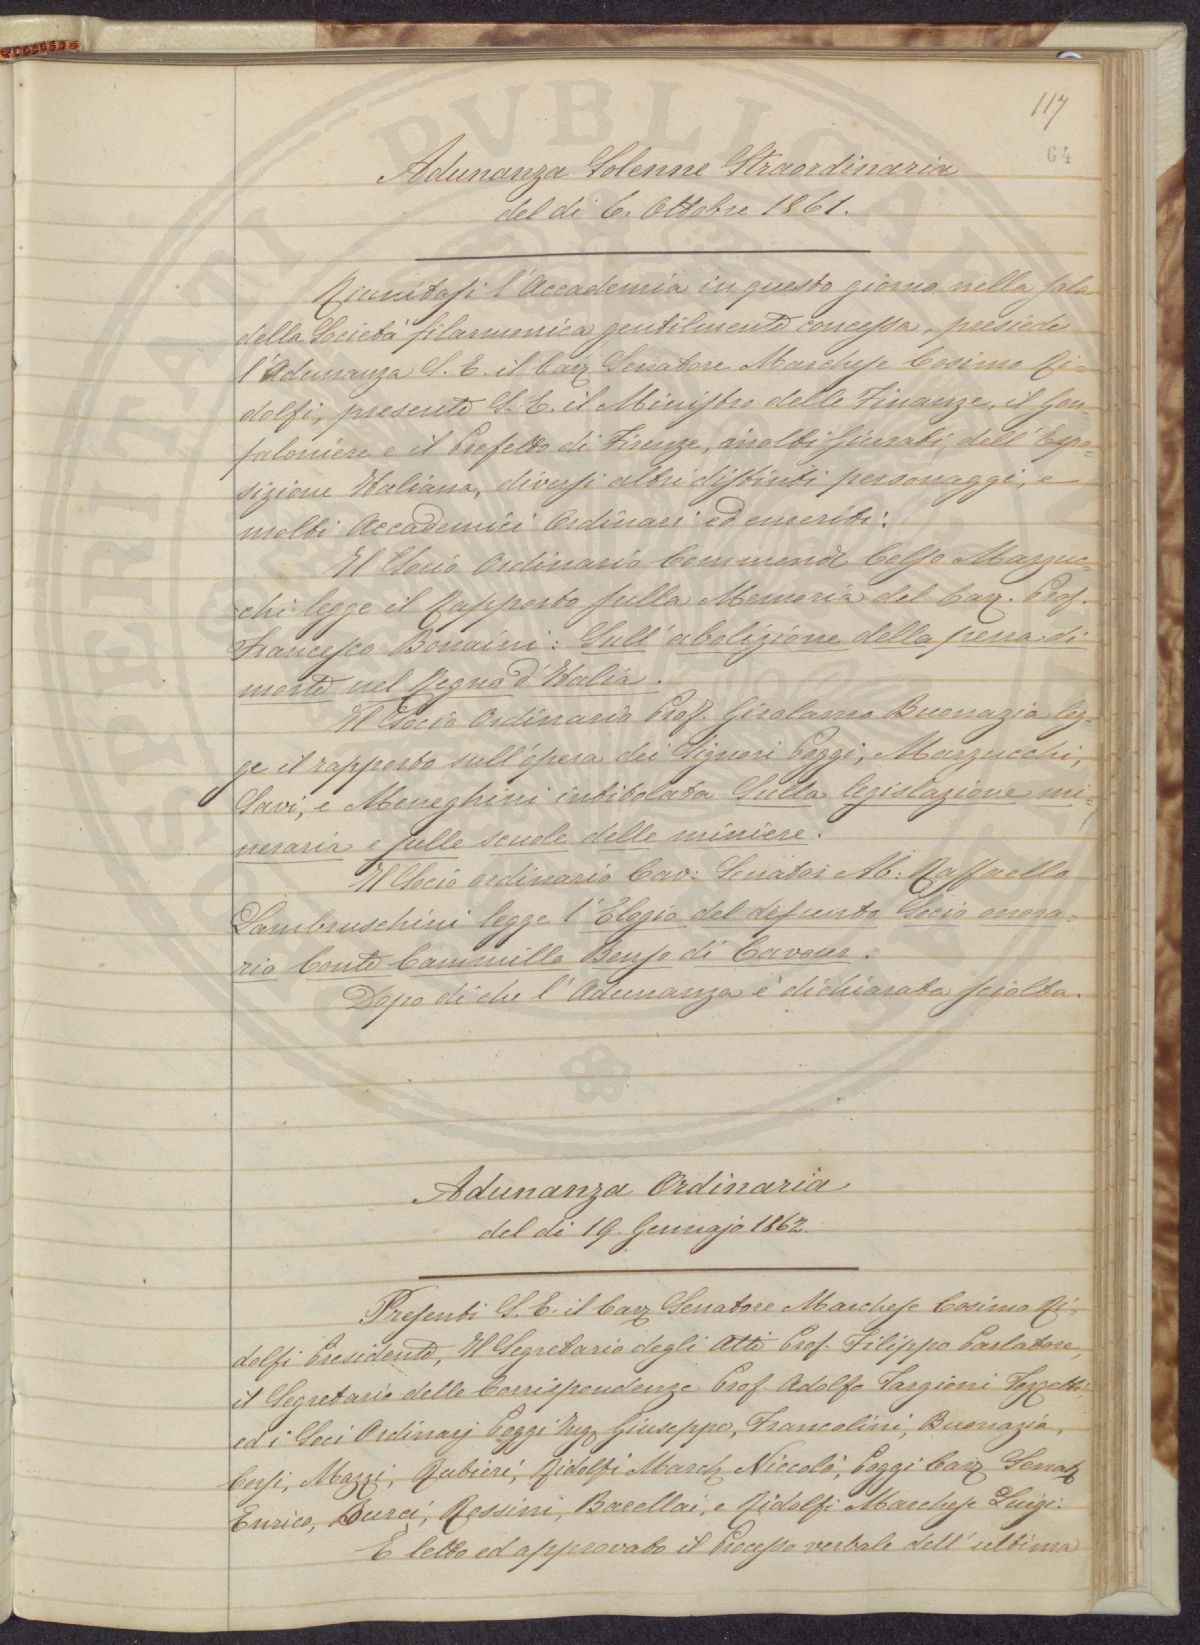 117
64
Adunanza Solenne Straordinaria
del di 6. Ottobre 1861.
Riunitasi l'Accademia in questo giorno nella sala
della Società filarmonica gentilmente concessa, presiede
l'Adunanza S. E. il Cav. Senatore Marchese Cosimo Ri=
dolfi, presente S. E. il Ministro delle Finanze, il Gon=
faloniere e il Prefetto di Firenze, molti Giurati, dell'Espo=
sizione Italiana, diversi altri distinti personaggi, e
molti Accademici Ordinari ed emeriti:
Il Socio Ordinario Commend. Celso Marzuc=
chi legge il Rapporto sulla Memoria del Cav. Prof.
Francesco Bonaini: Sull'abolizione della pena di
morte nel Regno d'Italia.
Il Socio Ordinario Prof. Girolamo Buonazia leg=
ge il rapporto sull'opera dei Signori Poggi, Marzucchi,
Savi, e Meneghini intitolata Sulla legislazione mi=
neraria e sulle scuole delle miniere.
Il Socio ordinario Cav: Senator Ab: Raffaello
Lambruschini legge l'Elogio del defunto Socio onora=
rio Conte Cammillo Benso di Cavour.
Dopo di che l'Adunanza è dichiarata sciolta.
Adunanza Ordinaria
del di 19. Gennajo 1862.
Presenti S. E. il Cav. Senatore Marchese Cosimo Ri=
dolfi Presidente, Il Segretario degli Atti Prof. Filippo Parlatore,
il Segretario delle Corrispondenze Prof. Adolfo Targioni Tozzetti
ed i Soci Ordinarj Poggi Ing. Giuseppe, Francolini, Buonazia,
Corsi, Mazzi, Rubieri, Ridolfi March. Niccolò, Poggi Cav. Senat.
Enrico, Durci, Rossini, Barellai, e Ridolfi Marchese Luigi:
È letto ed approvato il Processo verbale dell'ultima